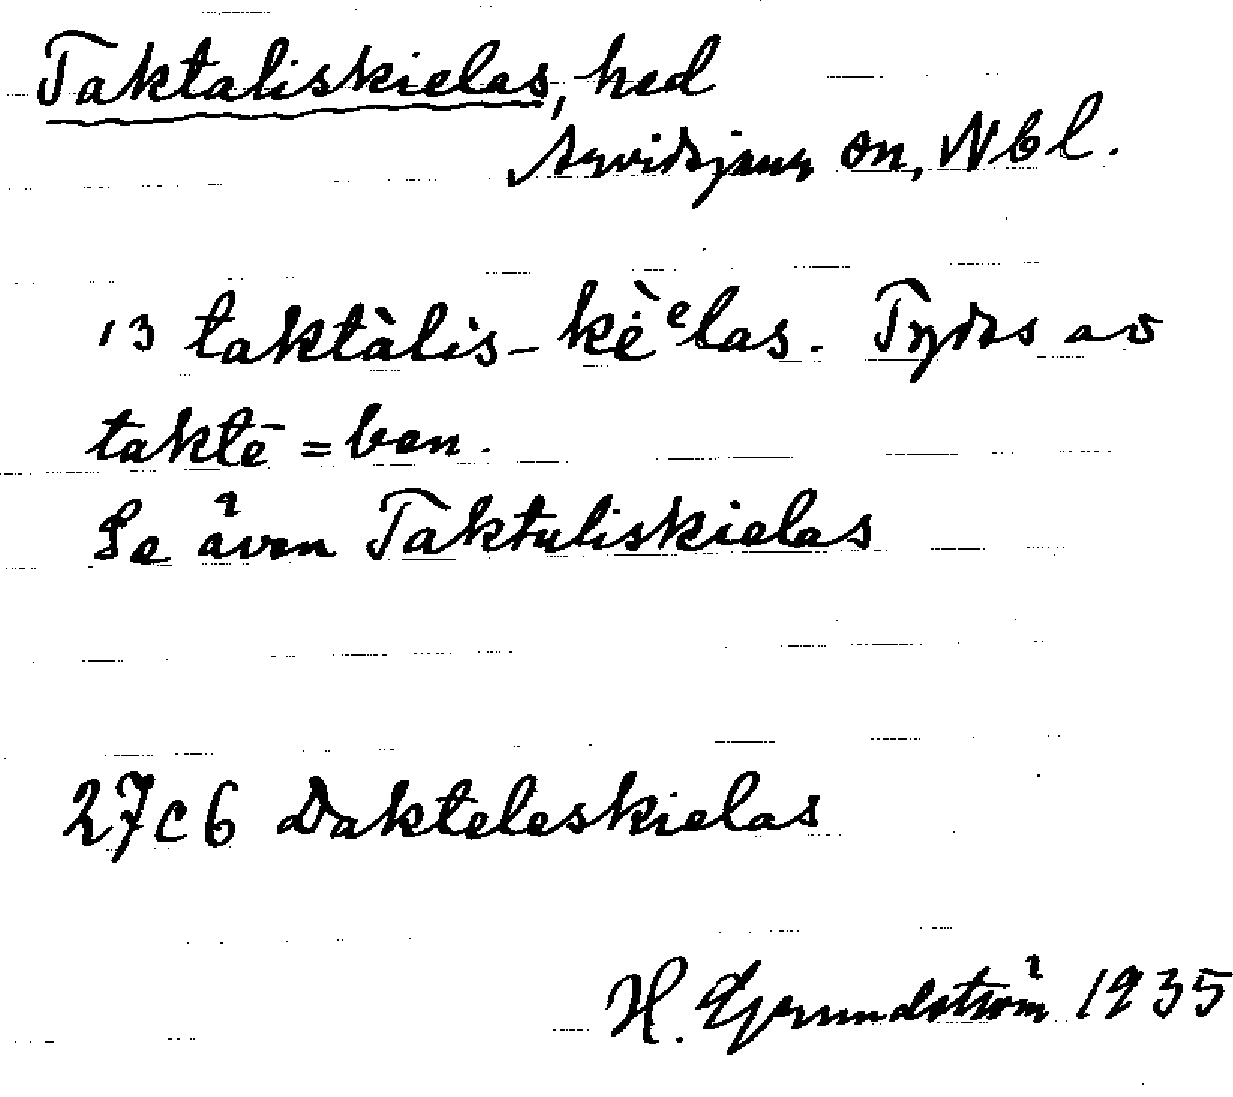 Taktaliskielas, hed
Arvidsjaur sn, Nbl.
13 taktàlis-kè̇ᵉlas. Tydes av
taktē = ben.
Se även Taktuliskielas
27c6 Dakteleskielas
H. Grundström 1935